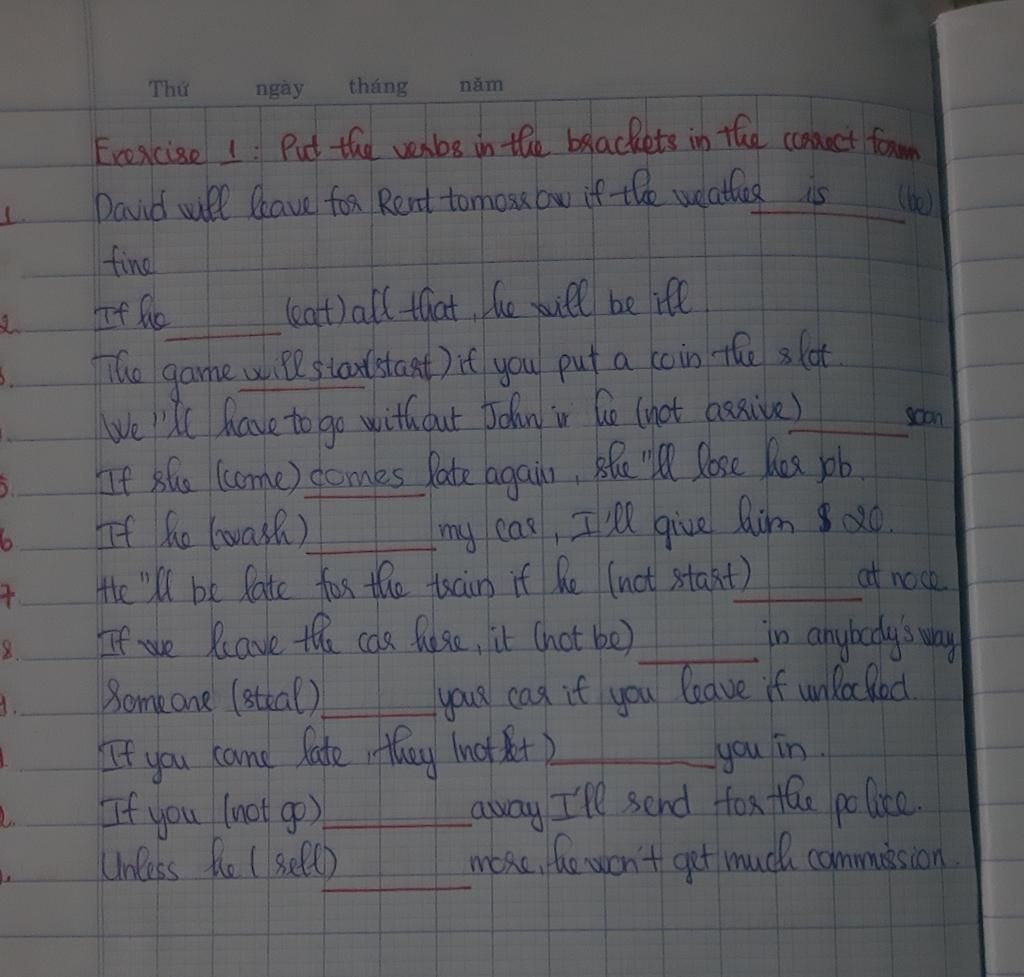 Thứ ngày tháng năm
Exercise 1: Put the verbs in the brackets in the correct form
1. David will leave for Rent tomorrow if the weather is (be)
fine
2. If he ______ (eat) all that, he will be ill
3. The game will start (start) if you put a coin the slot.
We'll have to go without John if he (not arrive) ______ soon
5. If she (come) comes late again, she"ll lose her job.
6 If he (wash) ______ my car, I'll give him $ 20.
7 He"ll be late for the train if he (not start) ______ at noce
8. If we leave the car here, it (not be) ______ in anybody's way
9. Someone (steal) ______ your car if you leave if unlocked.
If you come late, they (not let) ______ you in.
If you (not go) ______ away I'll send for the police.
Unless he (sell) ______ more, he won't get much commission.